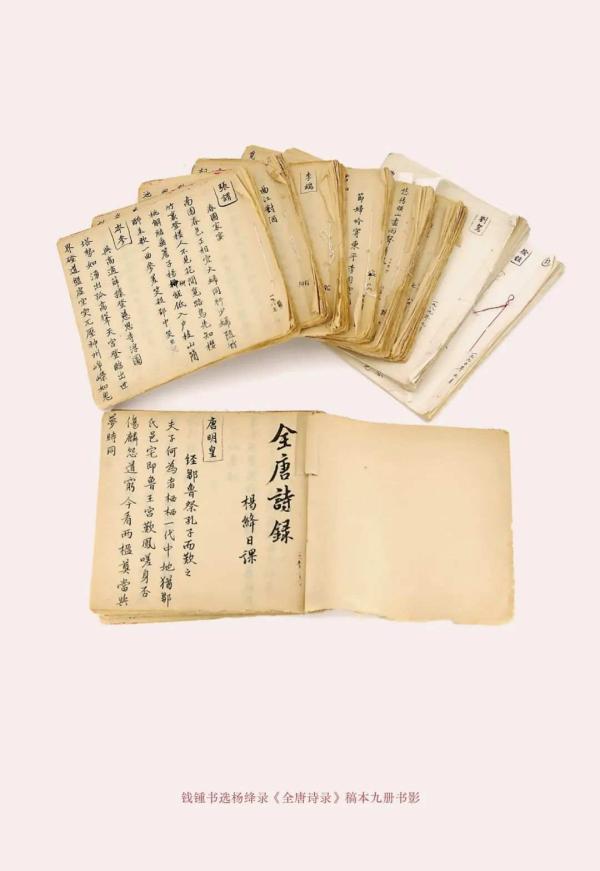 張謂
春園家宴
南園春色正相宜大婦同行少婦隨竹
裏登樓人不見花間覓路鳥先知櫻
桃解結垂簷子楊柳能低入戶枝山簡
醉來歌一曲參差笑殺郢中兒
岑參
與高適薛據登慈恩寺浮圖
塔勢如湧出孤高聳天宮登臨出世
界磴道盤虛空突兀壓神州崢嶸如鬼
曲江對酒
李端
節婦吟寄東平李司
全唐詩録
楊絳日課
唐明皇
經鄒魯祭孔子而歎之
夫子何為者栖栖一代中地猶鄹
氏邑宅即魯王宮歎鳳嗟身否
傷麟怨道窮今看兩楹奠當與
夢時同
钱锺书选杨绛录《全唐诗录》稿本九册书影